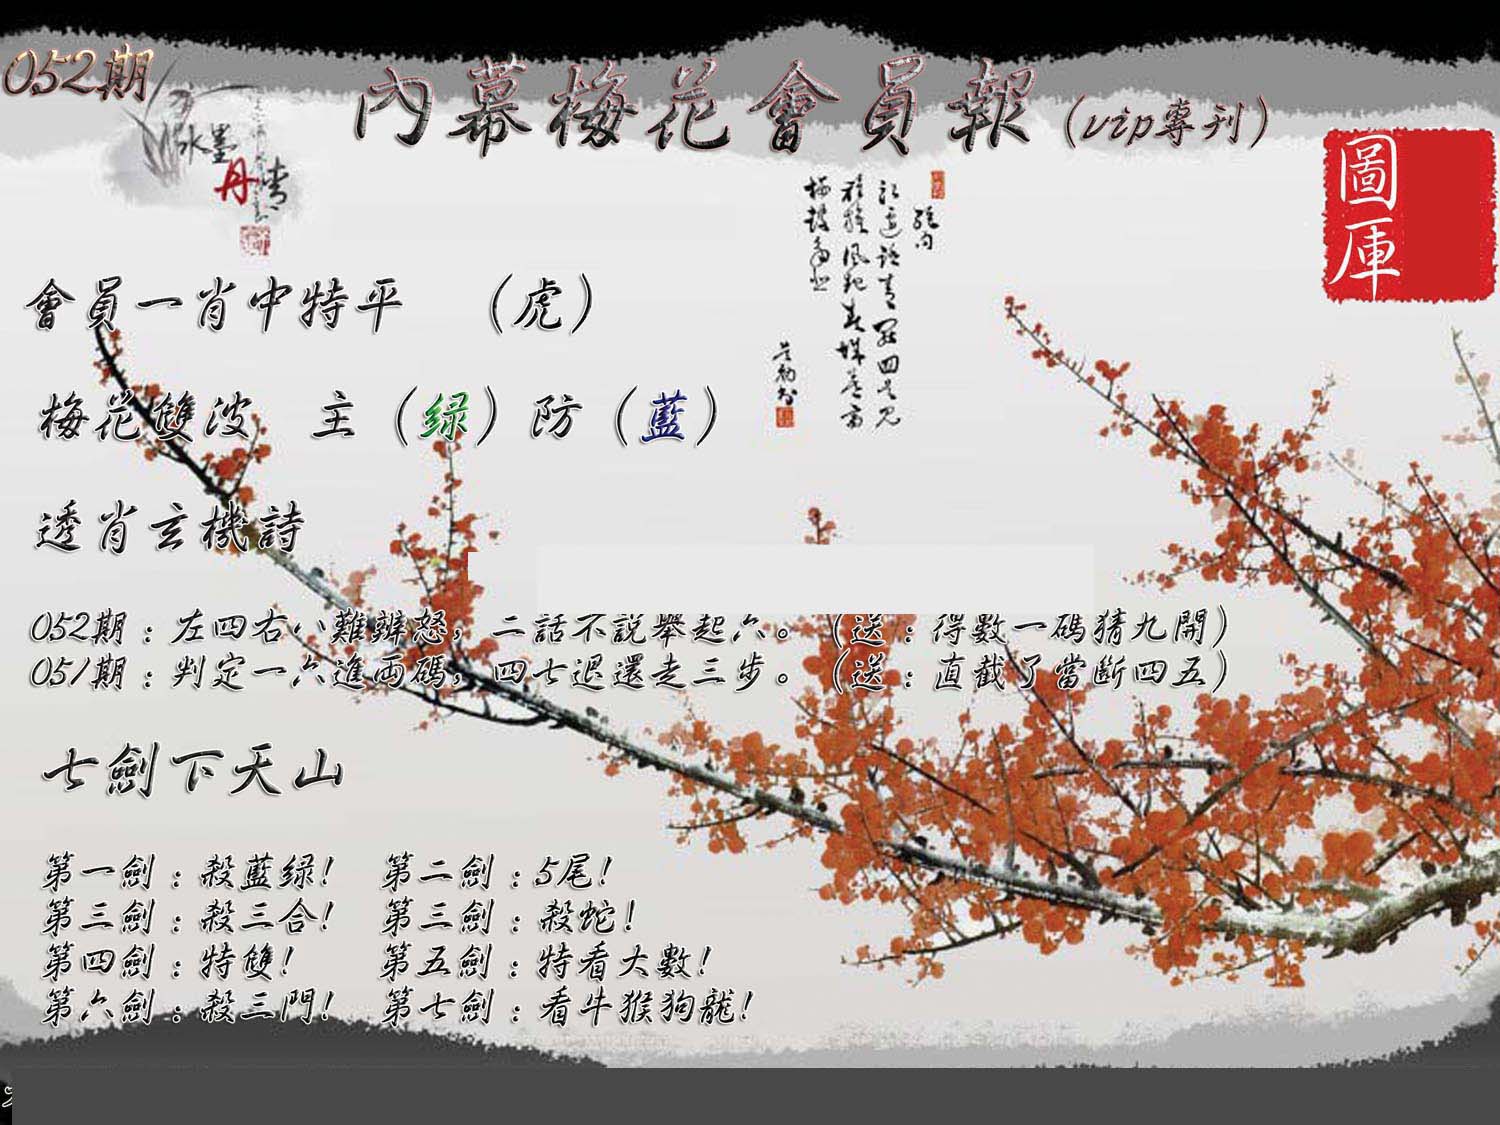 052期
內幕梅花會員報（vip專刊）
水墨
丹青
圖
庫
會員一肖中特平　（虎）
梅花雙波　主（绿）防（藍）
透肖玄機詩
052期：左四右八難辨怒，二話不說舉起六。（送：得數一碼猜九開）
051期：判定一六進両碼，四七退還走三步。（送：直截了當斷四五）
七劍下天山
第一劍：殺藍绿！　第二劍：5尾！
第三劍：殺三合！　第三劍：殺蛇！
第四劍：特雙！　第五劍：特看大數！
第六劍：殺三門！　第七劍：看牛猴狗龍！